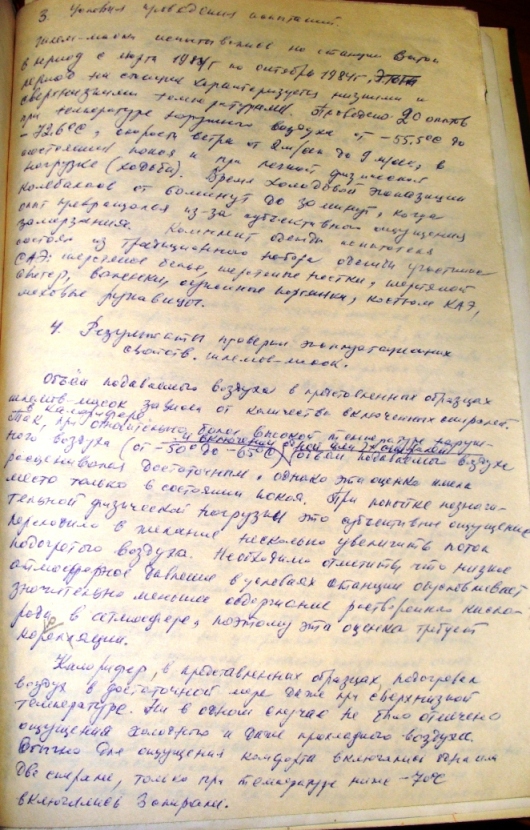 3. Условия проведения испытаний
Шлем-маски испытывались на станции Восток
в период с марта 1984г по октябрь 1984г. Этот
период на станции характеризуется низкими и
сверхнизкими температурами. Проведено 20 опытов
при температуре наружного воздуха от -55,5°С до
-72,6°С, скорости ветра от 2м/сек до 9 м/сек, в
состоянии покоя и при легкой физической
нагрузке (ходьба). Время холодовой экспозиции
колебалось от 60 минут до 30 минут, когда
опыт прекращался из-за субъективного ощущения
замерзания. Комплект одежды испытателя
состоял из традиционного набора одежды участника
САЭ: шерстяное белье, шерстяные носки, шерстяной
свитер, валенки, костюм КАЭ,
меховые рукавицы.
4. Результаты проверки эксплуатационных
свойств шлемов-масок.
Объём подаваемого воздуха в представленных образцах
шлемов-масок зависел от количества включенных спиралей
в калорифере.
Так, при относительно более высокой температуре наруж-
и включении одной или двух спиралей
ного воздуха (от -50° до -65°С) объем подаваемого воздуха
расценивался достаточным, однако эта оценка имела
место только в состоянии покоя. При попытке незначи-
тельной физической нагрузки это субъективное ощущение
переходило в желание несколько увеличить поток
подогретого воздуха. Необходимо отметить, что низкое
атмосферное давление в условиях станции обуславливает
значительно меньшее содержание кисло-
рода в атмосфере, поэтому эта оценка требует
коррекции.
Калорифер, в представленных образцах, подогревал
воздух в достаточной мере даже при сверхнизкой
температуре. Ни в одном случае не было отмечено
ощущения холодного и даже прохладного воздуха.
Обычно для ощущения комфорта включались одна или
две спирали, только при температуре ниже -70°С
включались 3 спирали.